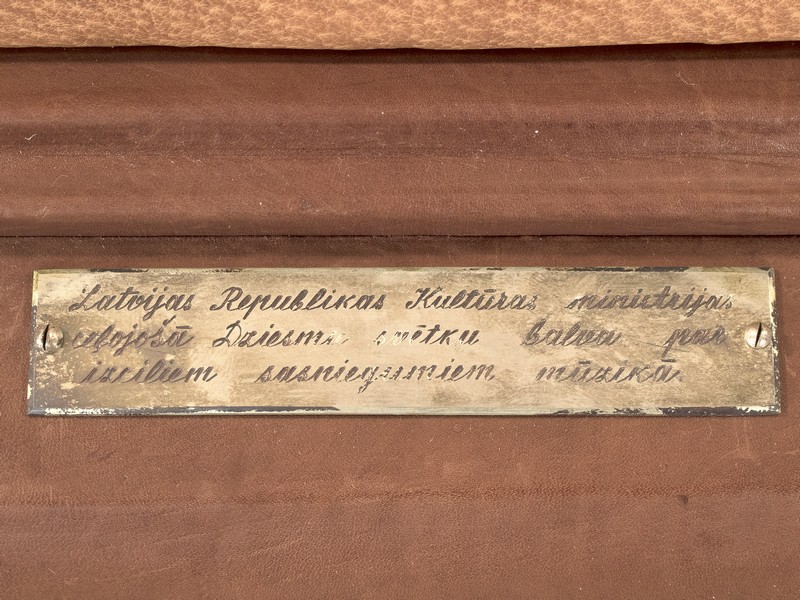 Latvijas Republikas Kultūras ministrijas
ceļojošā Dziesmu svētku balva par
izciliem sasniegumiem mūzikā.